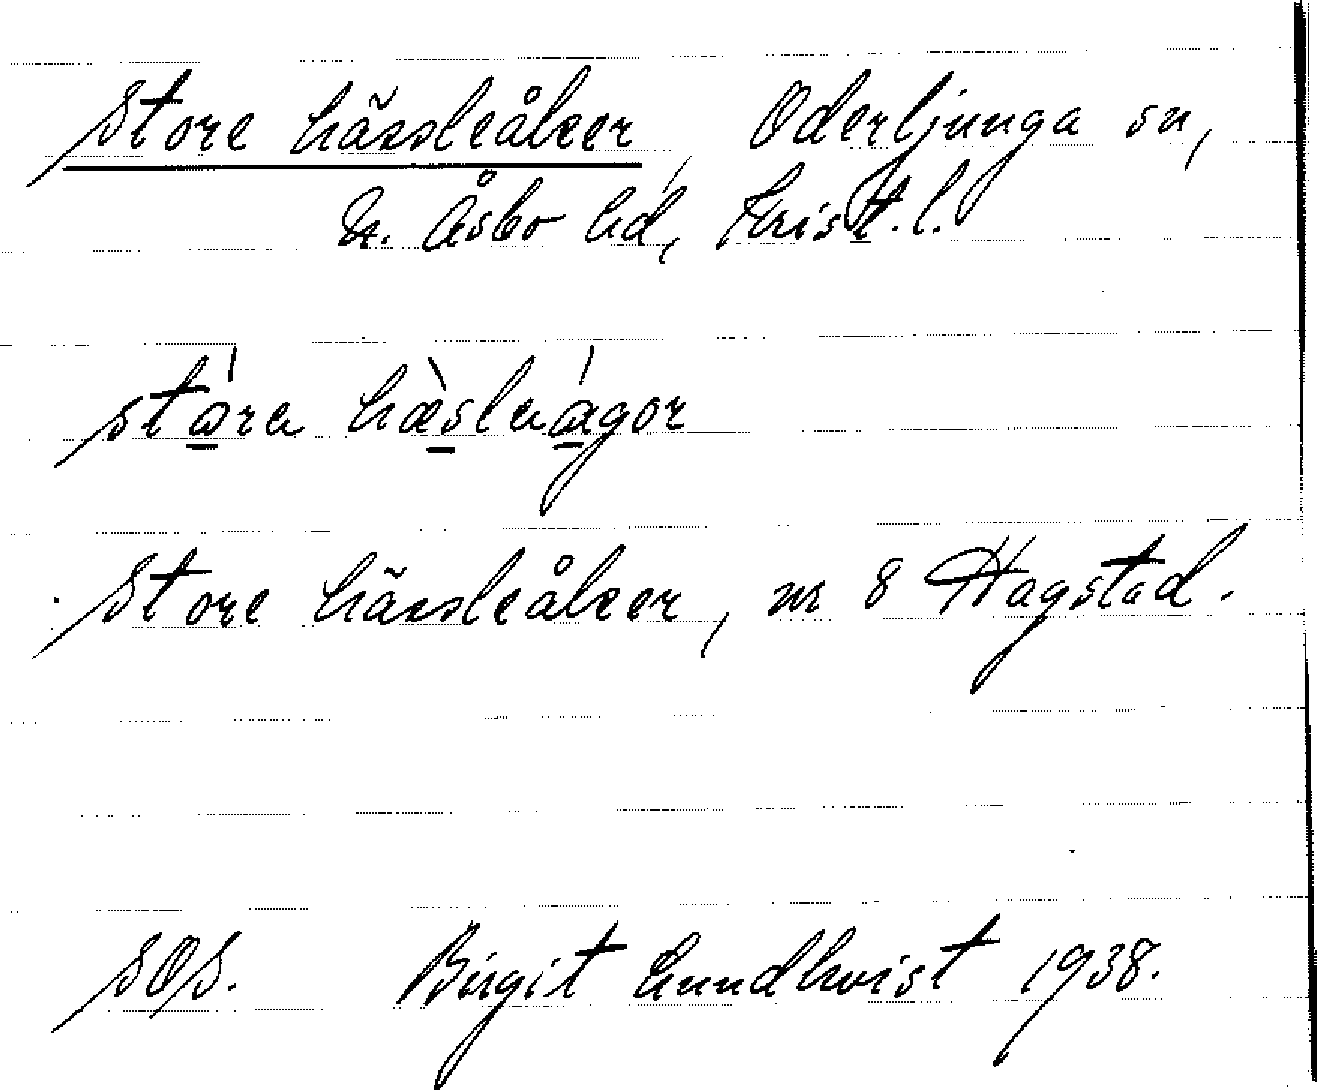 Store hässleåker, Oderljunga sn,
N. Åsbo hd, Krist. l.
Store hässleåker, nr 8 Hagstad.
SOS. Birgit Lundkvist 1938.